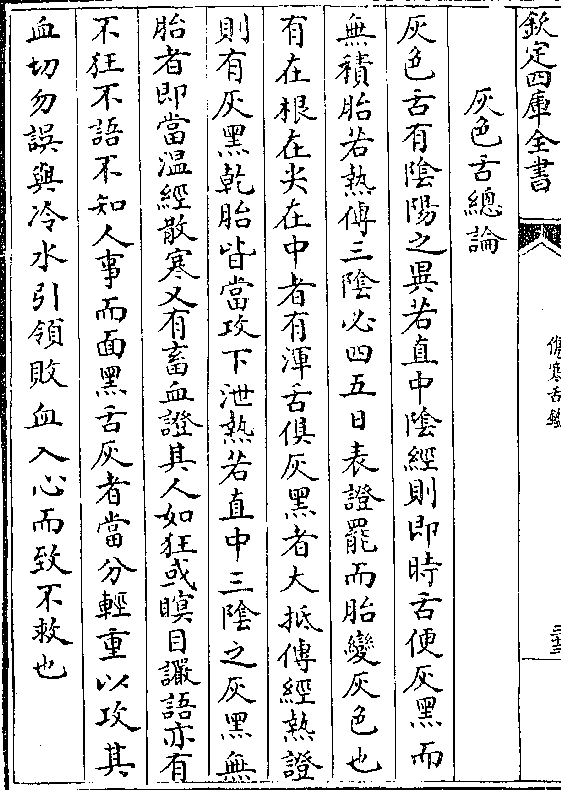 欽定四庫全書
傷寒舌鑑
灰色舌總論
灰色舌有陰陽之異若直中陰經則即時舌便灰黑而
無積胎若熱傳三陰必四五日表證罷而胎變灰色也
有在根在尖在中者有渾舌俱灰黑者大抵傳經熱證
則有灰黑乾胎皆當攻下泄熱若直中三陰之灰黑無
胎者即當温經散寒又有畜血證其人如狂或瞑目讝語亦有
不狂不語不知人事而面黑舌灰者當分輕重以攻其
血切勿誤與冷水引領敗血入心而致不救也